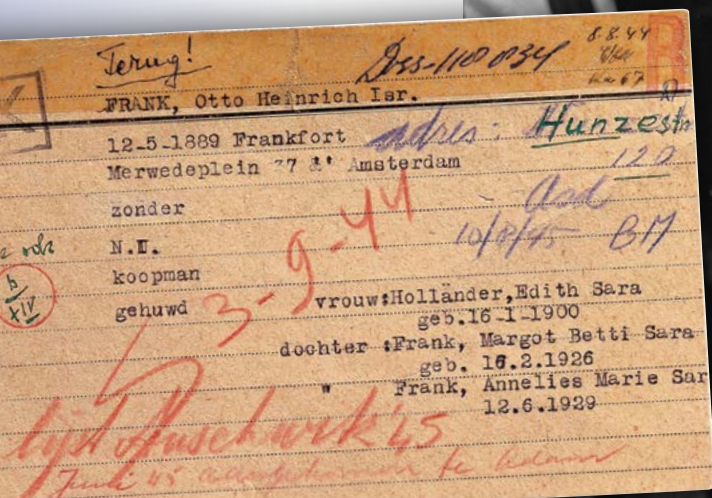 Terug!
8.8.44
FRANK, Otto Heinrich Isr.
12-5-1889 Frankfort
adres: Hunzestr
Merwedeplein 37 Amsterdam
120
zonder
Asd
N.I.
10/8/45 BM
koopman
gehuwd
3-9-44
vrouw:Holländer,Edith Sara
geb.16-1-1900
dochter :Frank, Margot Betti Sara
geb. 16.2.1926
" Frank, Annelies Marie Sar
12.6.1929
XIV
lijst Auschwitz '45
Juni 45 aangekomen te Adam